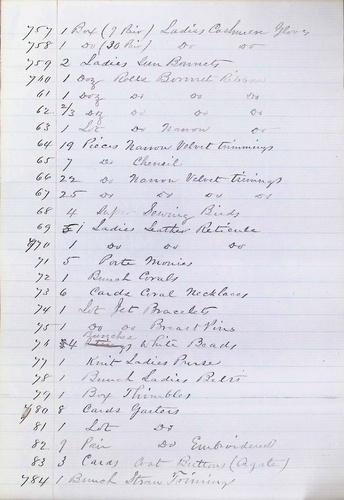 757 1 Box (9 Pair) Ladies Cashmere Gloves
758 1 Do (20 Pair) Do Do
759 2 Ladies Sun Bonnets
760 1 Doz Rolls Bonnet Ribbon
61 1 Doz Do Do Do
62 2/3 Doz Do Do Do
63 1 Lot Do Narrow Do
64 19 Pieces Narrow Velvet trimmings
65 7 Do Chenill
66 22 Do Narrow Velvet trimings
67 25 Do Do Do Do
68 4 Sewing Birds
69 1 Ladies Leather Reticule
770 1 Do Do Do
71 5 Porte Monies
72 1 Bunch Corals
73 6 Cards Coral Necklaces
74 1 Lot Jet Bracelets
75 1 Do Do Breast Pins
76 4 Bunches White Beads
77 1 Knit Ladies Purse
78 1 Bunch Ladies Belts
79 1 Box Thimbles
780 8 Cards Garters
81 1 Lot Do
82 9 Pair Do Embroidered
83 3 Cards Coat Buttons (Agate)
784 1 Bunch Straw Trimming